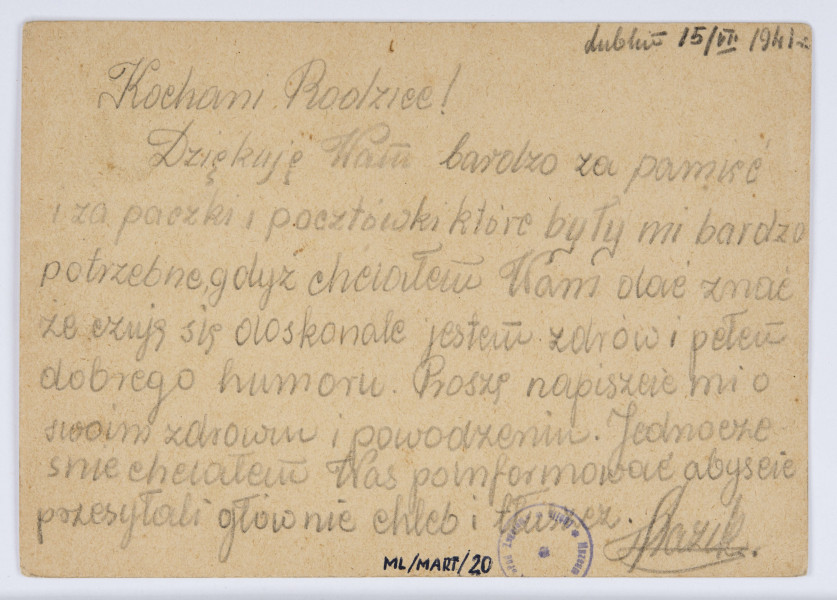 Lublin 15/VII 1941 r.
Kochani Rodzice!
Dziękuję Wam bardzo za pamięć
i za paczki i pocztówki które były mi bardzo
potrzebne, gdyż chciałem Wam dać znać
że czuję się doskonale jestem zdrów i pełen
dobrego humoru. Proszę napiszcie mi o
swoim zdrowiu i powodzeniu. Jednocze
śnie chciałem Was poinformować abyście
przesyłali głównie chleb i tłuszcz.
ML/MART/20
Muzeum